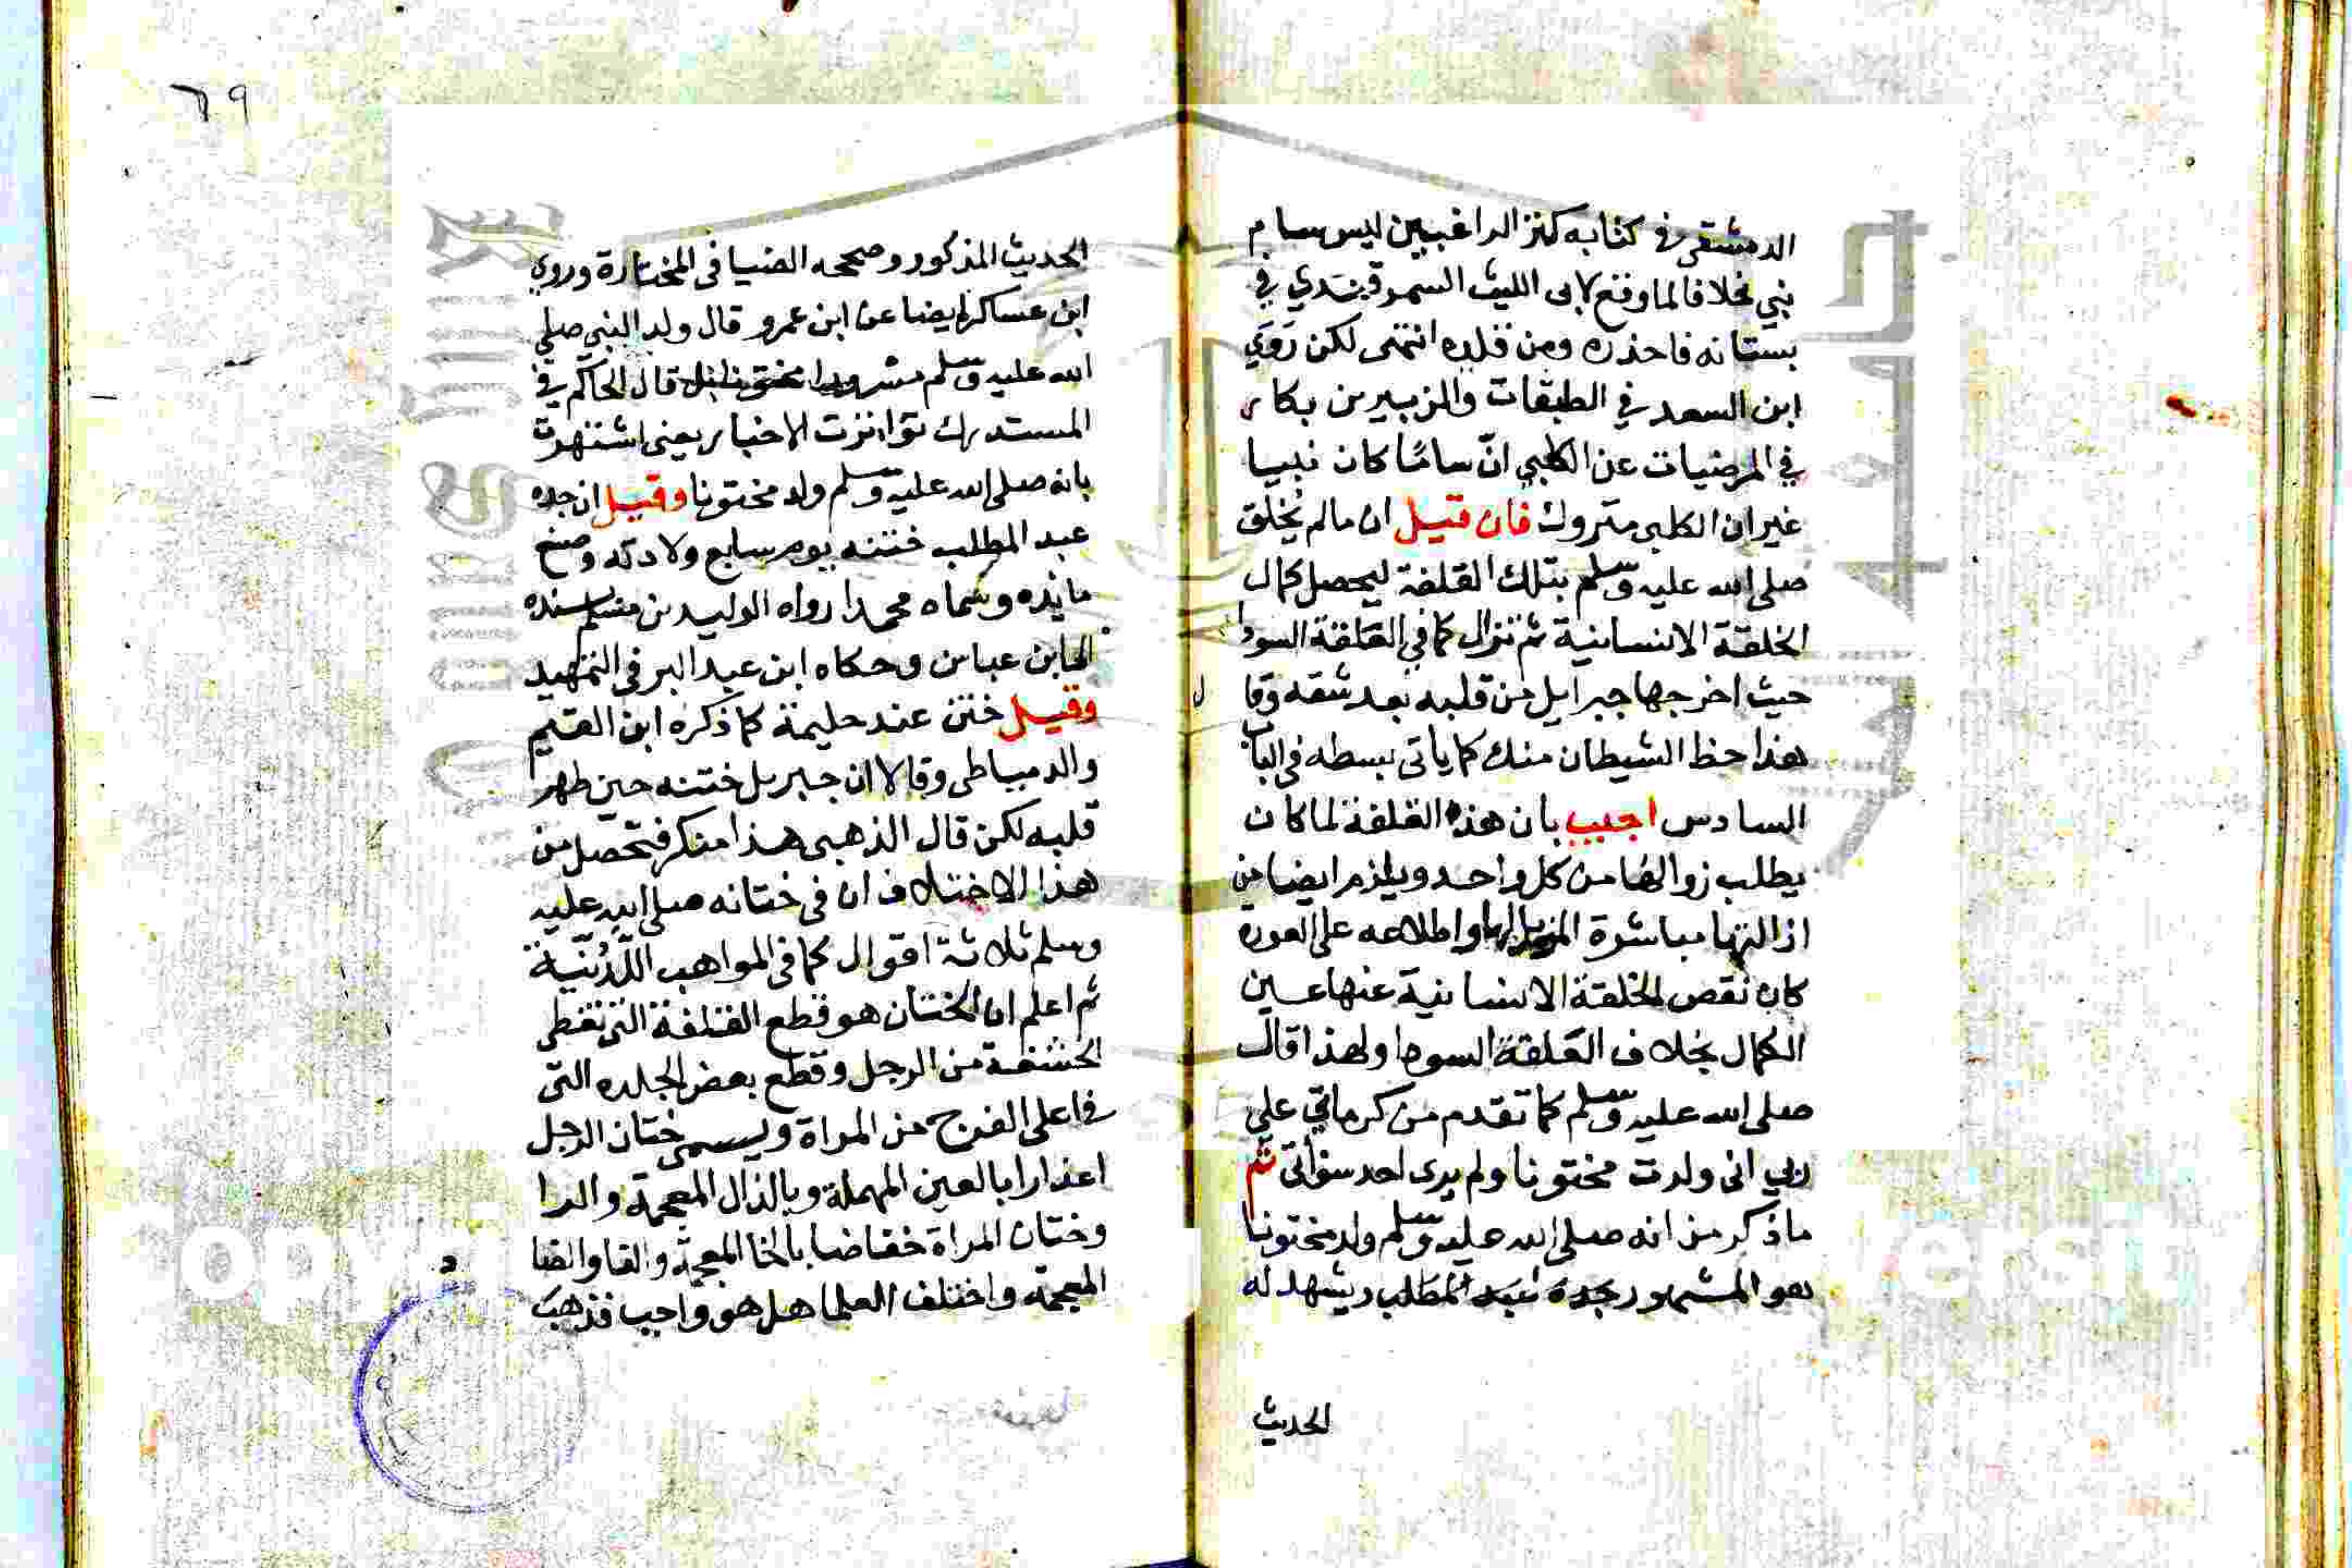 الدمشقى فى كتابه كنز الراغبين ليس سام
بنبي خلافا لما وقع لابى الليث السمرقندي في
بستانه فاحذره ومن قلده انتهى لكن رَوَي
ابن السعد في الطبقات والزبير بن بكار
في المرضيات عن الكلبي انّ سامًا كان نبيا
غير ان الكلبى متروك فان قيل ان ما لم يُخلق
صلى الله عليه وسلم بتلك القلفة ليحصل كمال
الخلقة الانسانية ثم تزال كما في العَلقة السودا
حيث اخرجها جبرايل من قلبه بعد شقه وقال
هذا حظ الشيطان منك كما ياتى بسطه فى الباب
السادس اجيب بان هذه القلفة لما كان
يطلب زوالها من كل واحد ويلزم ايضا من
ازالتها مباشرة المزيل لها واطلاعه على العورة
كان نقص الخلقة الانسانية عنها عين
الكمال بخلاف العَلقة السودا ولهذا قال
صلى الله عليه وسلم كما تقدم من كرمَاتي علي
ربي انى ولدت مختونا ولم يرى احد سوأتى ثم
ما ذكر من انه صلى الله عليه وسلم ولد مختونا
هو المشهور بجده عبد المطلب ويشهد له
الحديث
٦٩
الحديث المذكور وصححه الضيا فى المختارة وروي
ابن عساكر ايضا عن ابن عمرو قال ولد النبى صلى
الله عليه وسلم مسرورا مختونا قال الحاكم في
المستدرك تواترت الاخبار يعنى اشتهرت
بانه صلى الله عليه وسلم ولد مختونا وقيل ان جده
عبد المطلب ختنه يوم سابع ولادته وصنع
مائده وسَماه محمدا رواه الوليد بن مسلم بسنده
الى ابن عباس وحكاه ابن عبد البر فى التمهيد
وقيل ختن عند حليمة كما ذكره ابن القيم
والدمياطى وقالا ان جبريل ختنه حين طهر
قلبه لكن قال الذهبى هذا منكر فتحصل من
هذا الاختلاف ان فى ختانه صلى الله عليه
وسلم ثلاثة اقوال كما فى المواهب اللدُنّية
ثم اعلم ان الختان هو قطع القلفة التى تغطى
الحشفة من الرجل وقطع بعض الجلده التى
فى اعلى الفرج من المراة ويسمى ختان الرجل
اعذارا بالعين المهملة وبالذال المعجمة والرا
وختان المراة خفاضا بالخا المعجمة والفا والضا
المعجمة واختلف العلما هل هو واجب فذهب